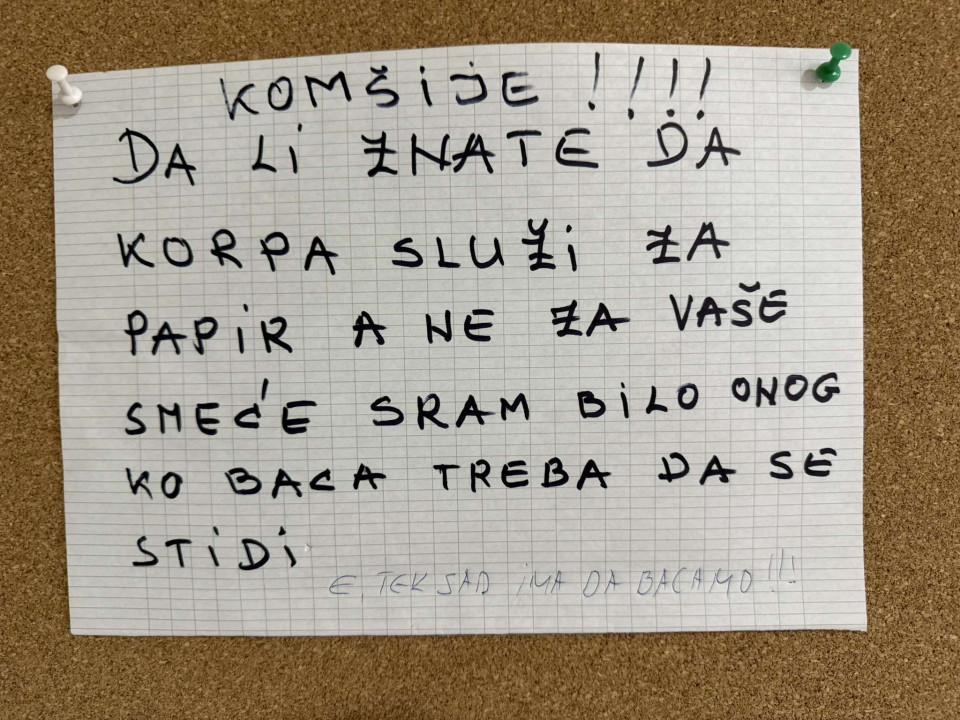 KOMŠIJE !!!!
DA LI ZNATE DA
KORPA SLUŽI ZA
PAPIR A NE ZA VAŠE
SMEĆE SRAM BILO ONOG
KO BACA TREBA DA SE
STIDI
E, TEK SAD IMA DA BACAMO!!!